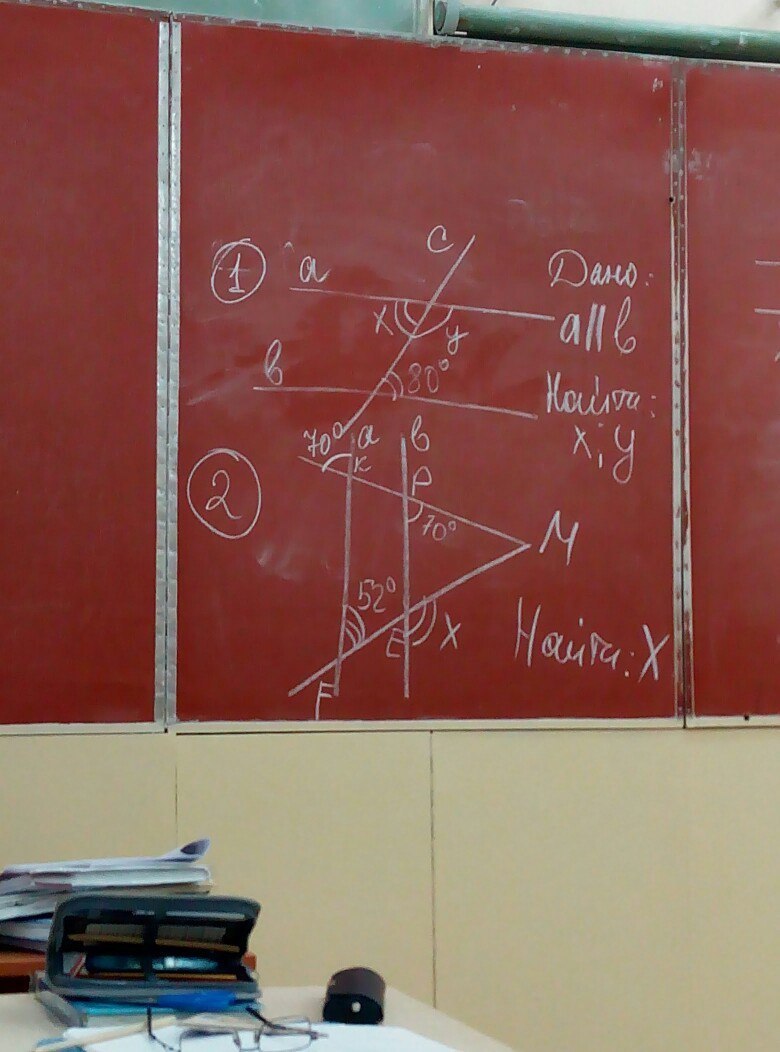 1
a
C
Дано:
x
y
a||b
b
80°
Найти:
x; y
2
70°
a
b
K
P
70°
M
52°
E
x
Найти: x
F